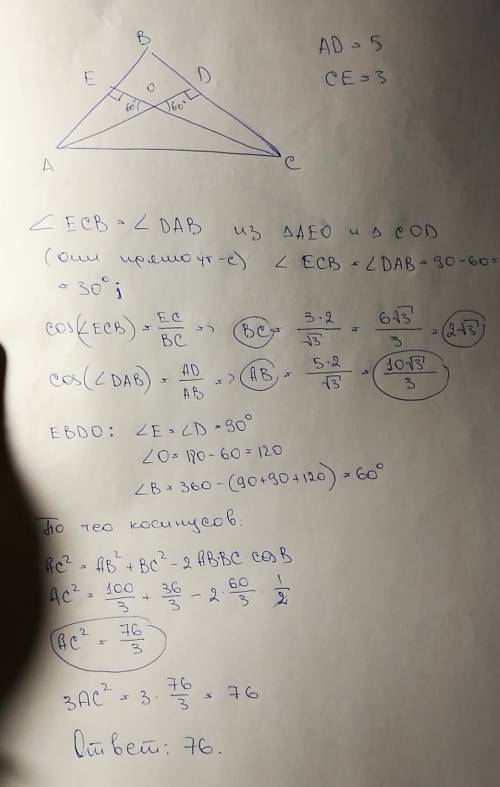 B
AD = 5
E O D
CE = 3
60° 60°
A C
∠ ECB = ∠ DAB из △ AEO и △ COD
(они прямоуг-е) ∠ ECB = ∠DAB = 90 - 60 =
= 30°;
cos(∠ECB) = EC/BC => BC = 3·2/√3 = 6√3/3 = 2√3
cos(∠DAB) = AD/AB => AB = 5·2/√3 = 10√3/3
EBDO: ∠E = ∠D = 90°
∠O = 180 - 60 = 120
∠B = 360 - (90+90+120) = 60°
По тео косинусов:
AC² = AB² + BC² - 2 AB BC cos B
AC² = 100/3 + 36/3 - 2 · 60/3 · 1/2
AC² = 76/3
3AC² = 3 · 76/3 = 76
Ответ: 76.